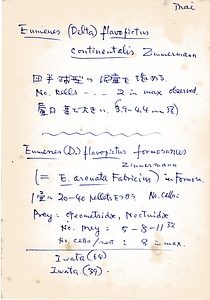 Thai
Eumenes (Delta) flavopictus
continentalis Zimmermann
No. cells - - - 2 in max observed.
Eumenes (D.) flavopictus formosanus
Zimmermann
(= E. arcuata Fabricius) in Formosa
20-40 pellets No. cells:
Prey: Geometridae, Noctuidae
No. prey : 5-8-11
No. cells/nest : 8 in max.
Iwata (64)
Iwata (39).